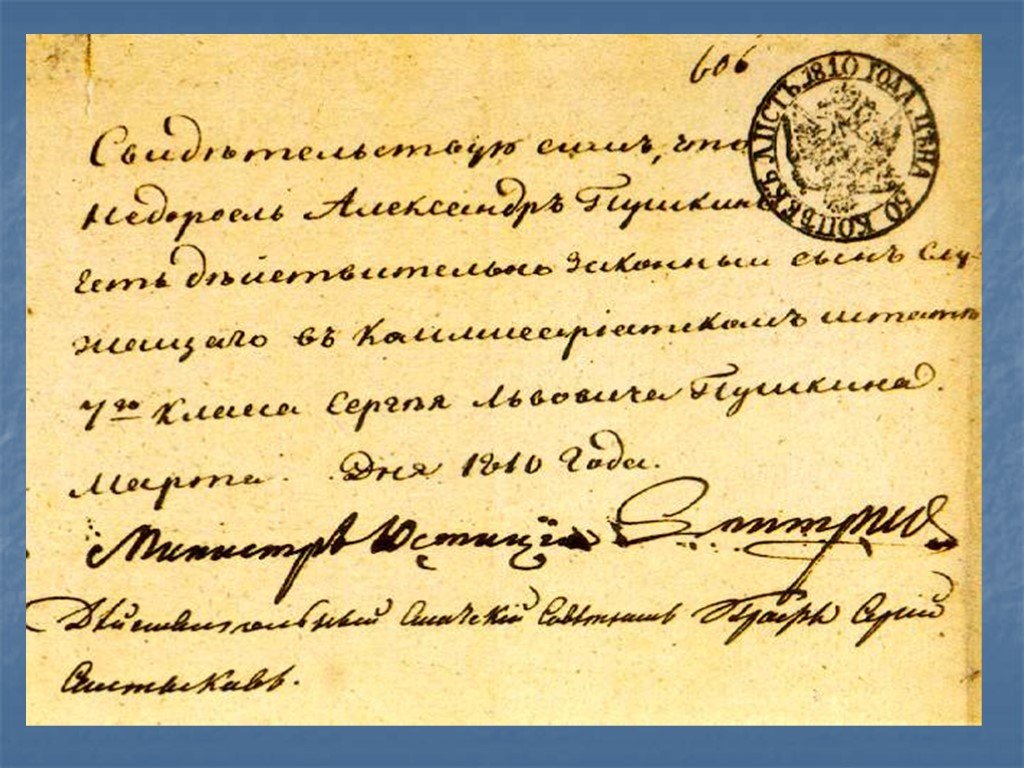 606
ЛИСТЪ 1810 ГОДА. ЦѢНА 50 КОПѢЕКЪ
Свидѣтельствую симъ, что
Недоросль Александръ Пушкинъ
Есть дѣйствительно Законный сынъ Слу-
жащаго въ Каммисерiатскомъ штатѣ
7го Класса Сергѣя Львовича Пушкина.
Марта. Дня 1810 Года.
Министръ Юстицiи Дмитриев
Дѣйствительный Статскiй Совѣтникъ Графъ Сергiй
Салтыковъ.